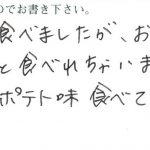 のでお書き下さい。
食べましたが、お
と食べれちゃいま
ポテト味 食べて